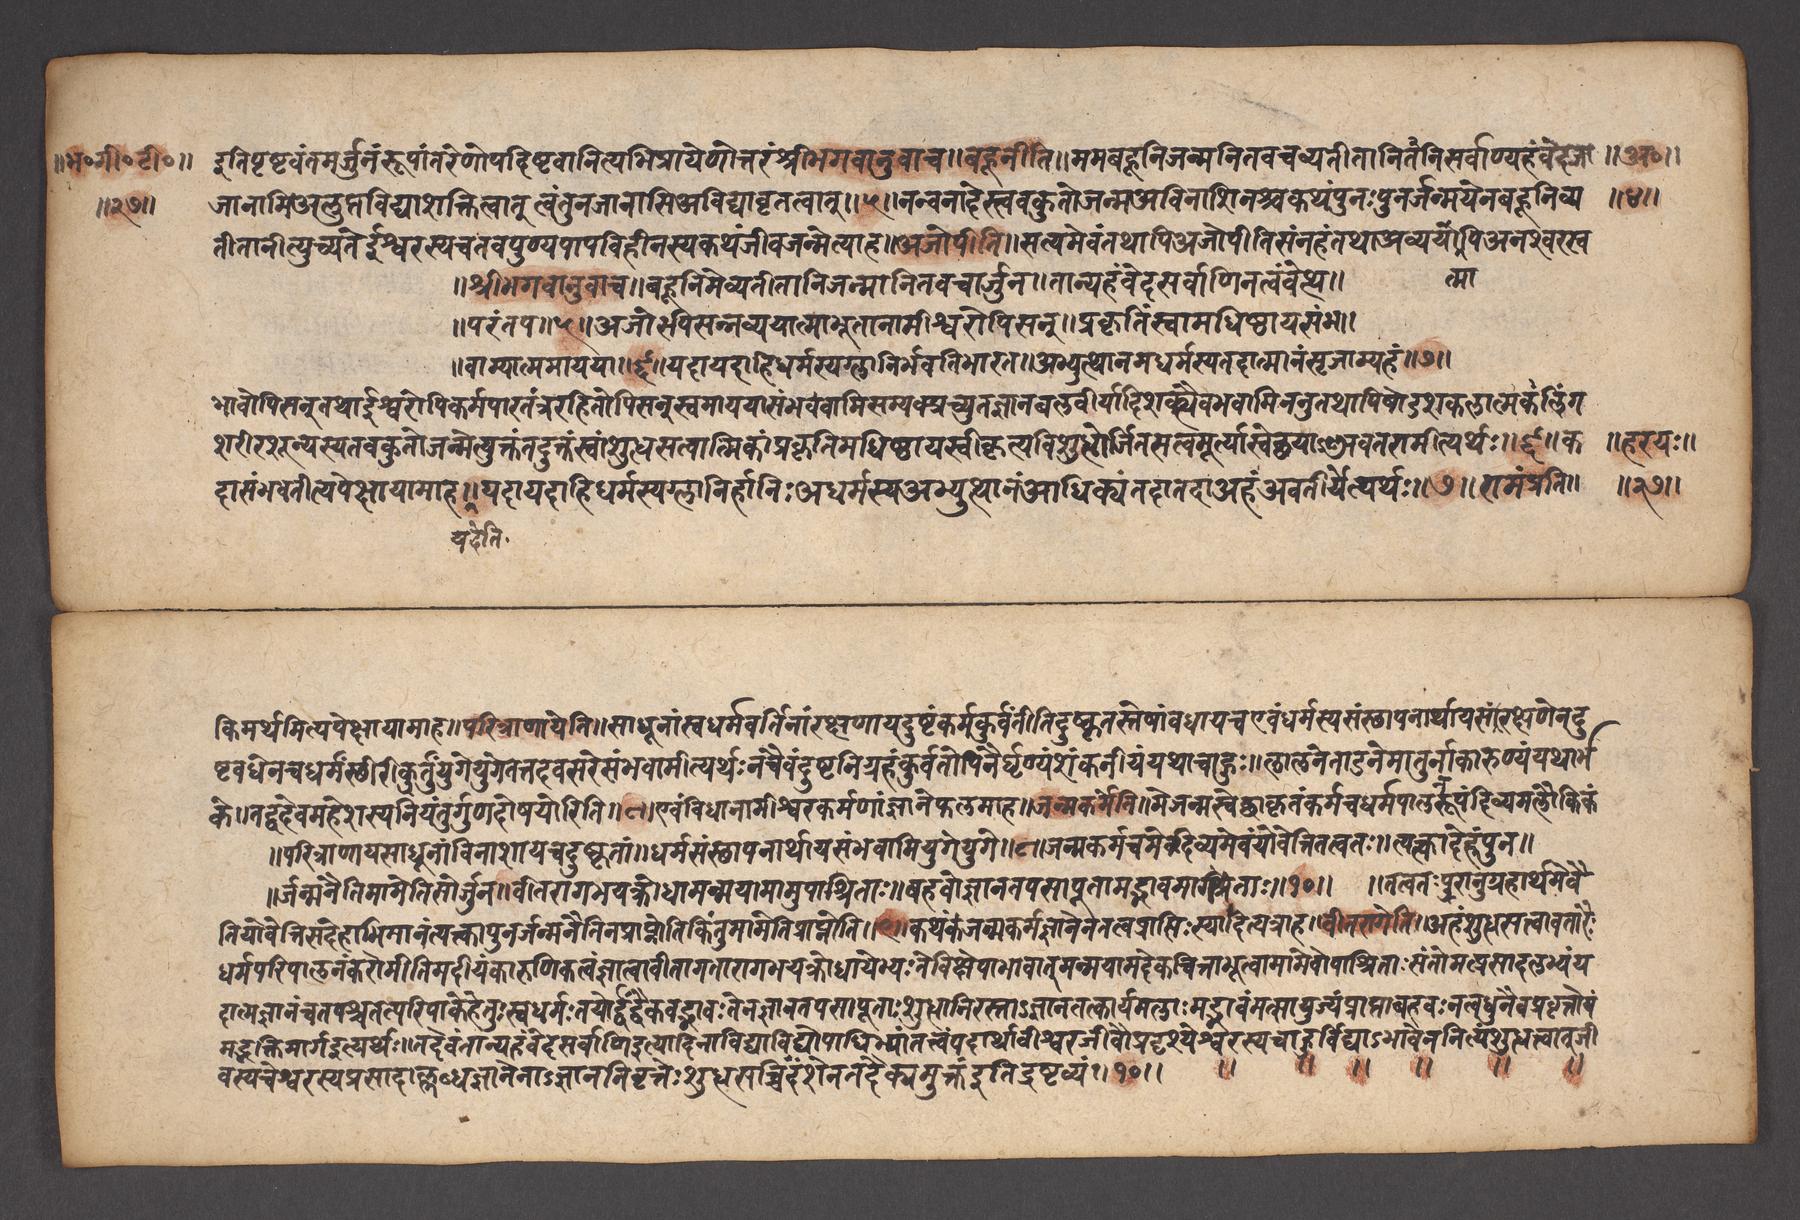 ॥भ॰गी॰टी॰॥ इतिपृष्टवंतमर्जुनंरूपांतरेणोपदिष्टवानित्यभिप्रायेणोत्तरंश्रीभगवानुवाच॥बहूनीति॥ममबहूनिजन्मनितवचव्यतीतानितंनिसर्वाण्यहंवेदजा ॥अ॰॥
॥२७॥ जानामिअलुप्तविद्याशक्तित्वात् त्वंतुनजानासिअविद्यावृतत्वात्॥५॥नन्वनादेस्तवकुतोजन्मअविनाशिनश्चकथंपुनःपुनर्जन्मयेनबहूनिव्य ॥४॥
तीतानीत्युच्यतेईश्वरस्यचतवपुण्यपापविहीनस्यकथंजीवजन्मेत्याह॥अजोपीति॥सत्यमेवंतथापिअजोपीतिसंनहंतथाअव्ययोपिअनश्वरस्व
॥श्रीभगवानुवाच॥बहूनिमेव्यतीतानिजन्मानितवचार्जुन॥तान्यहंवेदसर्वाणिनत्वंवेत्थ॥ त्मा
॥परंतप॥५॥अजोऽपिसन्नव्ययात्माभूतानामीश्वरोपिसन्॥प्रकृतिंस्वामधिष्ठायसंभ॥
॥वाम्यात्ममायया॥६॥यदायदाहिधर्मस्यग्लानिर्भवतिभारत॥अभ्युत्थानमधर्मस्यतदात्मानंसृजाम्यहं॥७॥
भावोपिसन्तथाईश्वरोपिकर्मपारतंत्ररहितोपिसन्स्वमाययासंभवंवामिसम्यक्प्रच्युतज्ञानबलवीर्यादिशक्त्यैवभवामिननुतथापिषोडशकलात्मकंलिंग
शरीरशून्यस्यतवकुतोजन्मेत्युक्तंतदुक्तंस्वांशुधसत्वात्मिकांप्रकृतिमधिष्ठायस्वीकृत्यविशुद्धोर्जितसत्वमूर्त्यास्वेछयाअवतरामीत्यर्थः॥६॥क ॥हरयः॥
दासंभवतीत्यपेक्षायामाह॥यदायदाहिधर्मस्यग्लानिर्हानिःअधर्मस्यअभ्युत्थानंआधिक्यंतदातदाअहंअवतीर्येत्यर्थः॥७॥रामंप्रति॥ ॥२७॥
यदेति॰
किमर्थमित्यपेक्षायामाह॥परित्राणायेति॥साधूनांस्वधर्मवर्तिनांरक्षणायदुष्टंकर्मकुर्वंतीतिदुष्कृतस्तेषांवधायचएवंधर्मस्यसंस्छापनार्थायसाधुरक्षणेनदु
ष्टवधेनचधर्मंस्छिरीकुर्तुंयुगेयुगेतत्तदवसरेसंभवामीत्यर्थःनचैवंदुष्टनिग्रहंकुर्वतोपिनैर्घृण्यंशंकनीयंयथाचाहुः॥लालनेताडनेमातुर्नाकारुण्यंयथार्भ
के॥तद्वदेवमहेशस्यनियंतुर्गुणदोषयोरिति॥८॥एवंविधानामीश्वरकर्मणांज्ञानेफलमाह॥जन्मकर्मेति॥मेजन्मस्वेछाकृतंकर्मचधर्मपालनरूपंदिव्यमलौकिकं
॥परित्राणायसाधूनांविनाशायचदुष्कृतां॥धर्मसंस्छापनार्थायसंभवामियुगेयुगे॥८॥जन्मकर्मचमेदिव्यमेवंयोवेत्तितत्वतः॥त्यक्त्कादेहंपुन॥
॥र्जन्मनैतिमामेतिसोर्जुन॥वीतरागभयक्रोधामन्मयामामुपाश्रिताः॥बहवोज्ञानतपसापूतामद्भावमागताः॥१०॥ ॥तत्वतःपरानुग्रहार्थमेवै
तियोवेत्तिसदेहाभिमानंत्यत्क्कापुनर्जन्मनैतिनप्राप्नोतिकिंतुमामेतिप्राप्नोति॥९॥कथंकजन्मकर्मज्ञानेनतत्वप्राप्तिःस्यादित्यत्राह॥वीतरागेति॥अहंशुद्धसत्वावतारैः
धर्मपरिपालनंकरोमीतिमदीयंकारुणिकत्वंज्ञात्वावीतागतारागभयक्रोधायेभ्यःतेविक्षेपाभावात्मन्मयामदेकचित्ताभूत्वामामेवोपाश्रिताःसंतोमत्प्रसादलभ्यंय
दात्मज्ञानंचतपश्चतत्परिपाकहेतुःस्वधर्मःतयोर्द्वंद्वैकवद्भावःतेनज्ञानतपसापूताःशुधानिरस्ताऽज्ञानतत्कार्यमलाःमद्भावंमत्सायुज्यंप्राप्ताबहवःनत्वधुनैवप्रवृत्तोयं
मद्भक्तिमार्गइत्यर्थः॥तदेवंतान्यहंवेदसर्वाणिइत्यादिनाविद्याविद्योपाधिभ्यांतत्वंपदार्थावीश्वरजीवौप्रदृश्येश्वरस्यचाहुर्विद्याऽभावेननित्यंशुधत्वात्जी
वस्यचेश्वरस्यप्रसादाल्लब्धज्ञानेनाऽज्ञाननिवृत्तेःशुधसचिदंशेनतदैक्यमुक्तंइतिद्रष्टव्यं॥१०॥ ॥ ॥ ॥ ॥ ॥ ॥